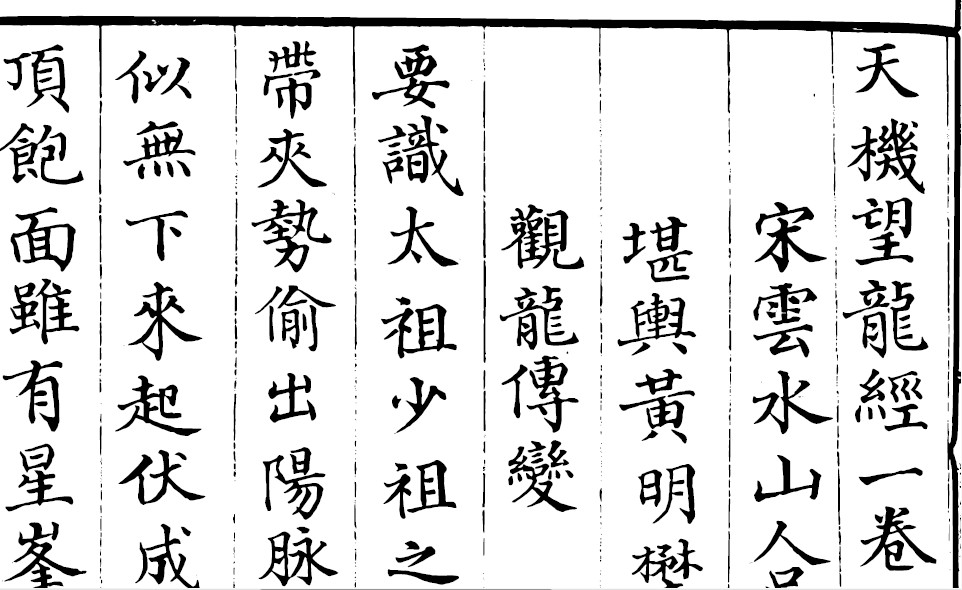 天機望龍經一卷
宋雲水山人
堪輿黃明
觀龍傳變
要識太祖少祖之
帶夾勢偷出陽脉
似無下來起伏成
頂飽面雖有星峯